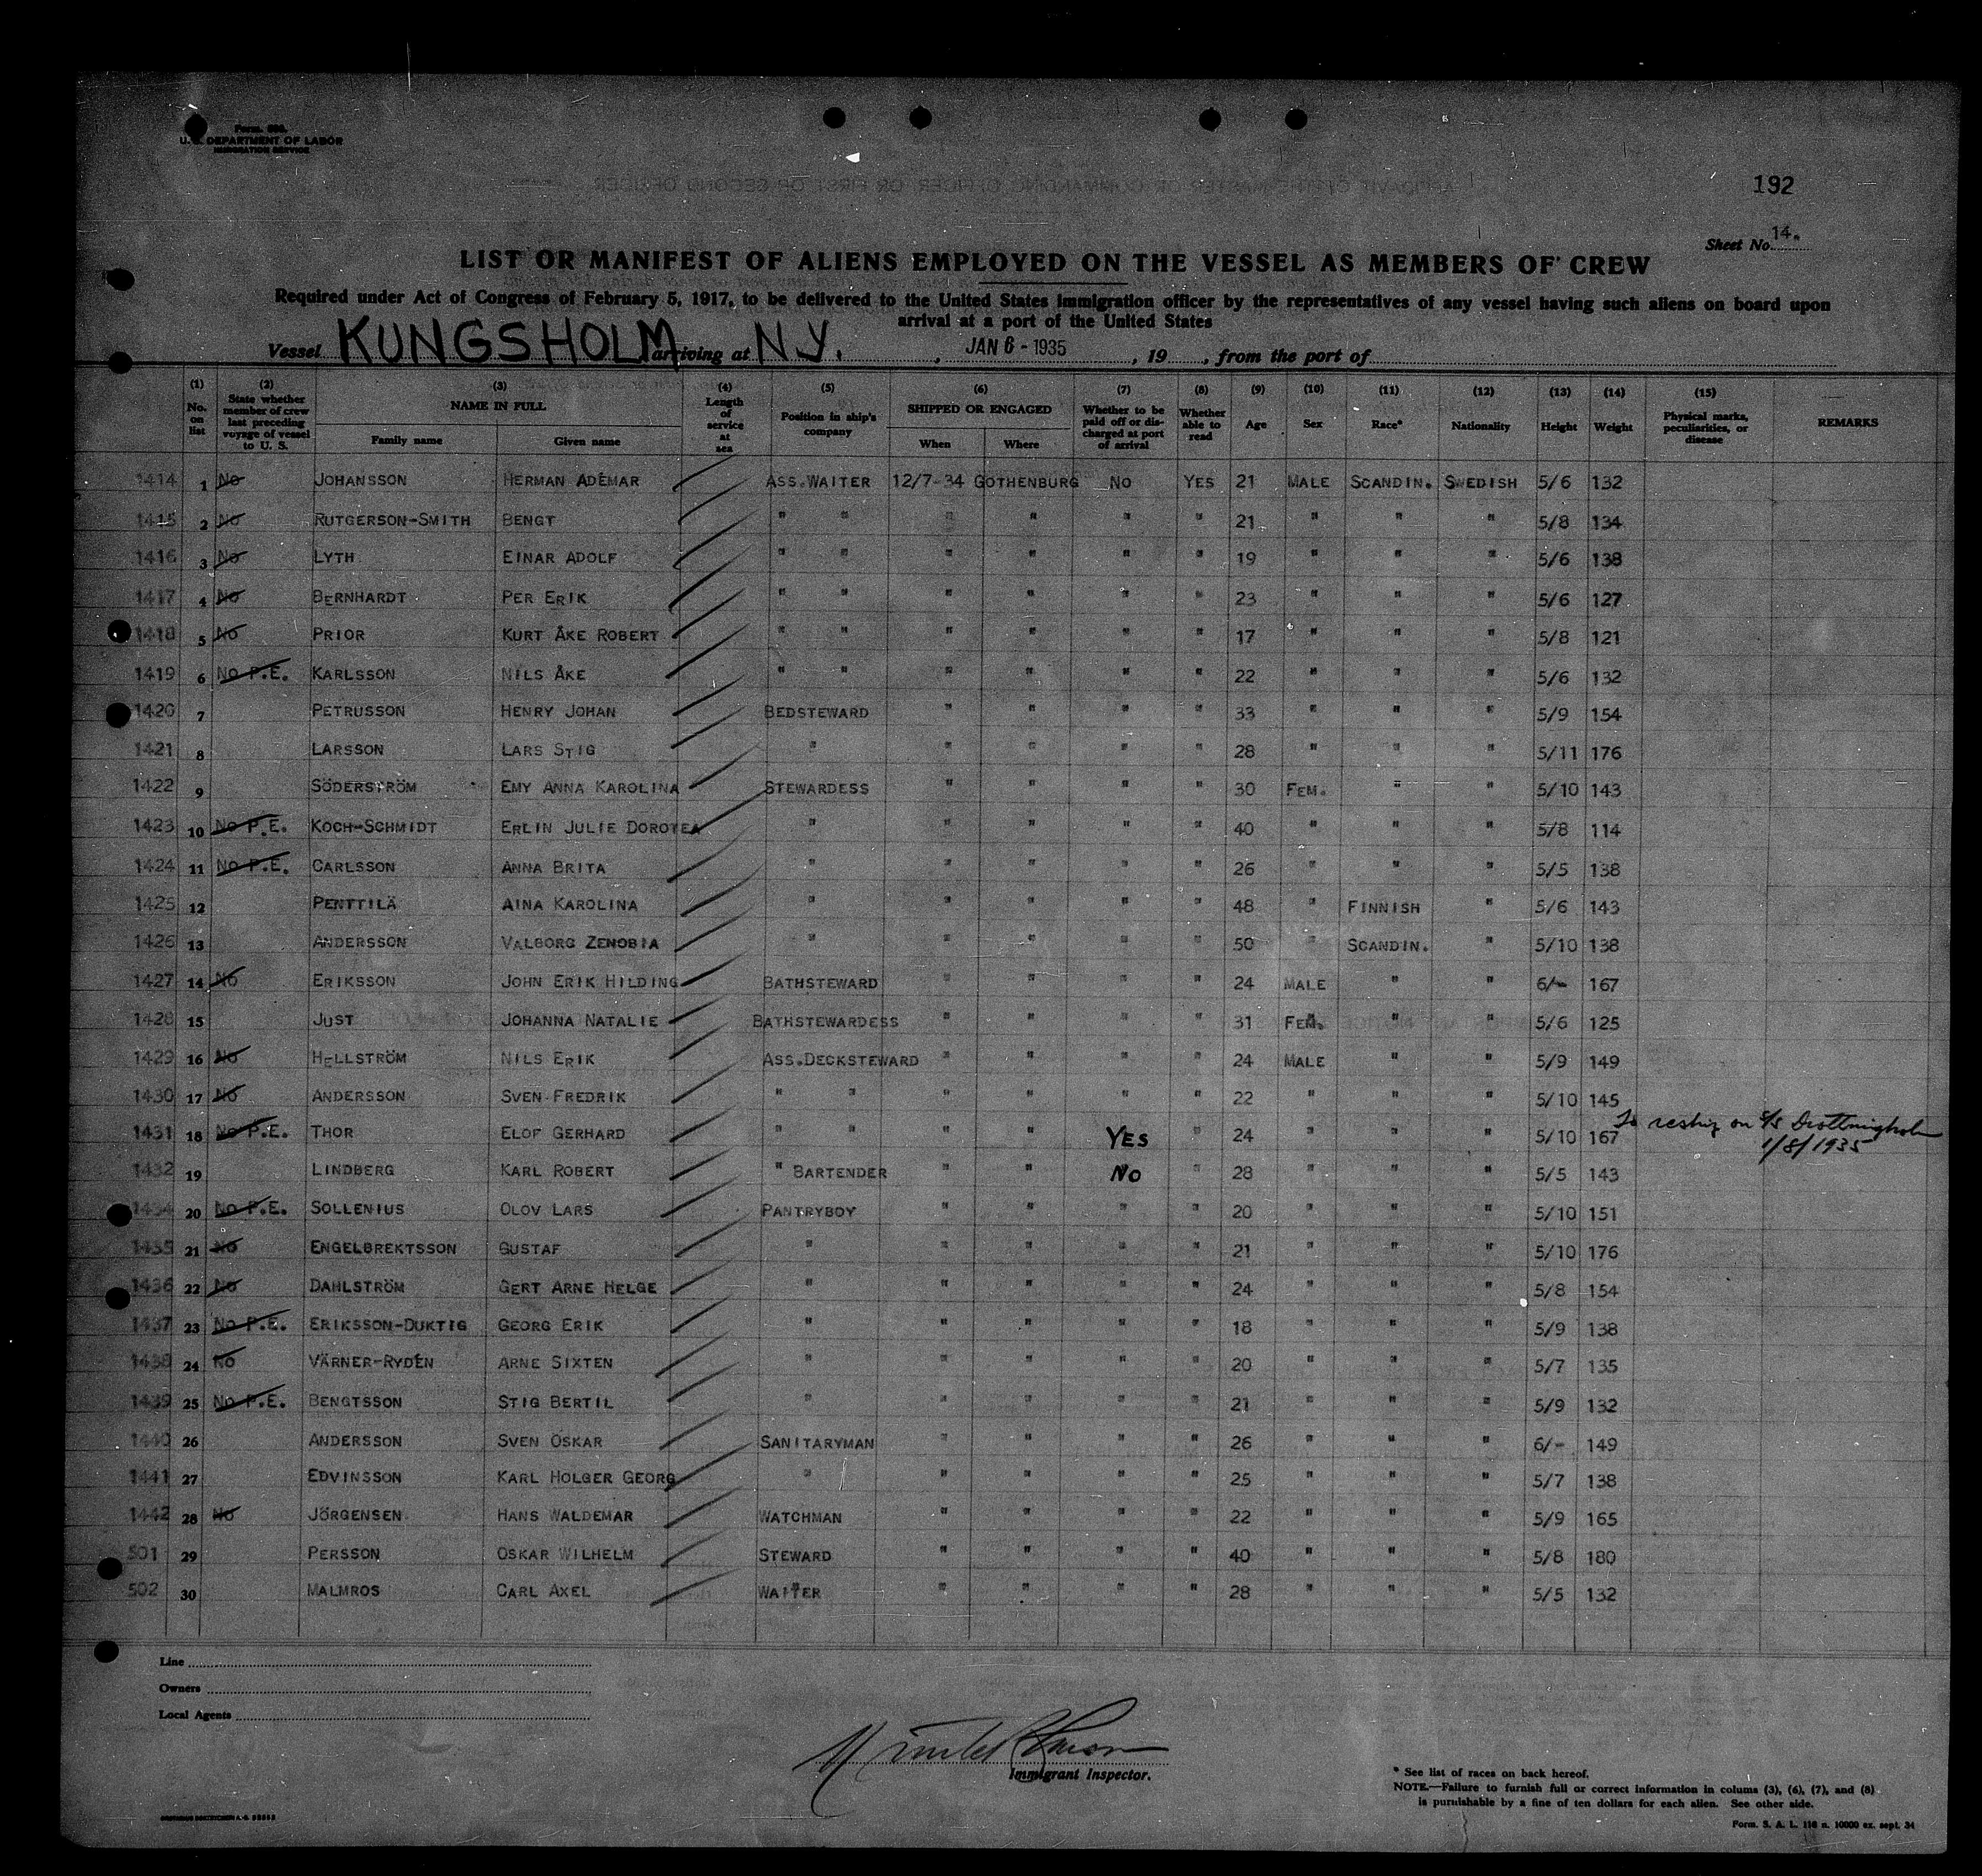 U. S. DEPARTMENT OF LABOR
IMMIGRATION SERVICE
192
Sheet No. 14.
LIST OR MANIFEST OF ALIENS EMPLOYED ON THE VESSEL AS MEMBERS OF CREW
Required under Act of Congress of February 5, 1917, to be delivered to the United States immigration officer by the representatives of any vessel having such aliens on board upon
arrival at a port of the United States
Vessel KUNGSHOLM arriving at N.Y. , JAN 6 - 1935 , 19 , from the port of
(1) No. on list (2) State whether member of crew last preceding voyage of vessel to U. S. (3) NAME IN FULL Family name Given name (4) Length of service at sea (5) Position in ship's company (6) SHIPPED OR ENGAGED When Where (7) Whether to be paid off or discharged at port of arrival (8) Whether able to read (9) Age (10) Sex (11) Race* (12) Nationality (13) Height (14) Weight (15) Physical marks, peculiarities, or disease REMARKS
1414 1 No JOHANSSON HERMAN ADÉMAR ASS.WAITER 12/7-34 GOTHENBURG NO YES 21 MALE SCANDIN. SWEDISH 5/6 132
1415 2 No RUTGERSON-SMITH BENGT " " " " " " 21 " " " 5/8 134
1416 3 No LYTH EINAR ADOLF " " " " " " 19 " " " 5/6 138
1417 4 No BERNHARDT PER ERIK " " " " " " 23 " " " 5/6 127
1418 5 No PRIOR KURT ÅKE ROBERT " " " " " " 17 " " " 5/8 121
1419 6 No P.E. KARLSSON NILS ÅKE " " " " " " 22 " " " 5/6 132
1420 7 PETRUSSON HENRY JOHAN BEDSTEWARD " " " " 33 " " " 5/9 154
1421 8 LARSSON LARS STIG " " " " " 28 " " " 5/11 176
1422 9 SÖDERSTRÖM EMY ANNA KAROLINA STEWARDESS " " " " 30 FEM. " " 5/10 143
1423 10 No P.E. KOCH-SCHMIDT ERLIN JULIE DOROTEA " " " " " 40 " " " 5/8 114
1424 11 No P.E. CARLSSON ANNA BRITA " " " " " 26 " " " 5/5 138
1425 12 PENTTILÄ AINA KAROLINA " " " " " 48 " FINNISH " 5/6 143
1426 13 ANDERSSON VALBORG ZENOBIA " " " " " 50 " SCANDIN. " 5/10 138
1427 14 No ERIKSSON JOHN ERIK HILDING BATHSTEWARD " " " " 24 MALE " " 6/- 167
1428 15 JUST JOHANNA NATALIE BATHSTEWARDESS " " " " 31 FEM. " " 5/6 125
1429 16 No HELLSTRÖM NILS ERIK ASS.DECKSTEWARD " " " " 24 MALE " " 5/9 149
1430 17 No ANDERSSON SVEN FREDRIK " " " " " " 22 " " " 5/10 145
1431 18 No P.E. THOR ELOF GERHARD " " " " YES " 24 " " " 5/10 167 To reship on S/S Drottningholm
1/8/1935
1432 19 LINDBERG KARL ROBERT " BARTENDER " " NO " 28 " " " 5/5 143
1434 20 No P.E. SOLLENIUS OLOV LARS PANTRYBOY " " " " 20 " " " 5/10 151
1435 21 No ENGELBREKTSSON GUSTAF " " " " " 21 " " " 5/10 176
1436 22 No DAHLSTRÖM GERT ARNE HELGE " " " " " 24 " " " 5/8 154
1437 23 No P.E. ERIKSSON-DUKTIG GEORG ERIK " " " " " 18 " " " 5/9 138
1438 24 No VÄRNER-RYDÉN ARNE SIXTEN " " " " " 20 " " " 5/7 135
1439 25 No P.E. BENGTSSON STIG BERTIL " " " " " 21 " " " 5/9 132
1440 26 ANDERSSON SVEN OSKAR SANITARYMAN " " " " 26 " " " 6/- 149
1441 27 EDVINSSON KARL HOLGER GEORG " " " " " 25 " " " 5/7 138
1442 28 No JÖRGENSEN HANS WALDEMAR WATCHMAN " " " " 22 " " " 5/9 165
501 29 PERSSON OSKAR WILHELM STEWARD " " " " 40 " " " 5/8 180
502 30 MALMROS CARL AXEL WAITER " " " " 28 " " " 5/5 132
Line
Owners
Local Agents
Immigrant Inspector.
* See list of races on back hereof.
NOTE.—Failure to furnish full or correct information in colums (3), (6), (7), and (8)
is punishable by a fine of ten dollars for each alien. See other side.
Form. S. A. L. 116 n. 10000 ex. sept. 34